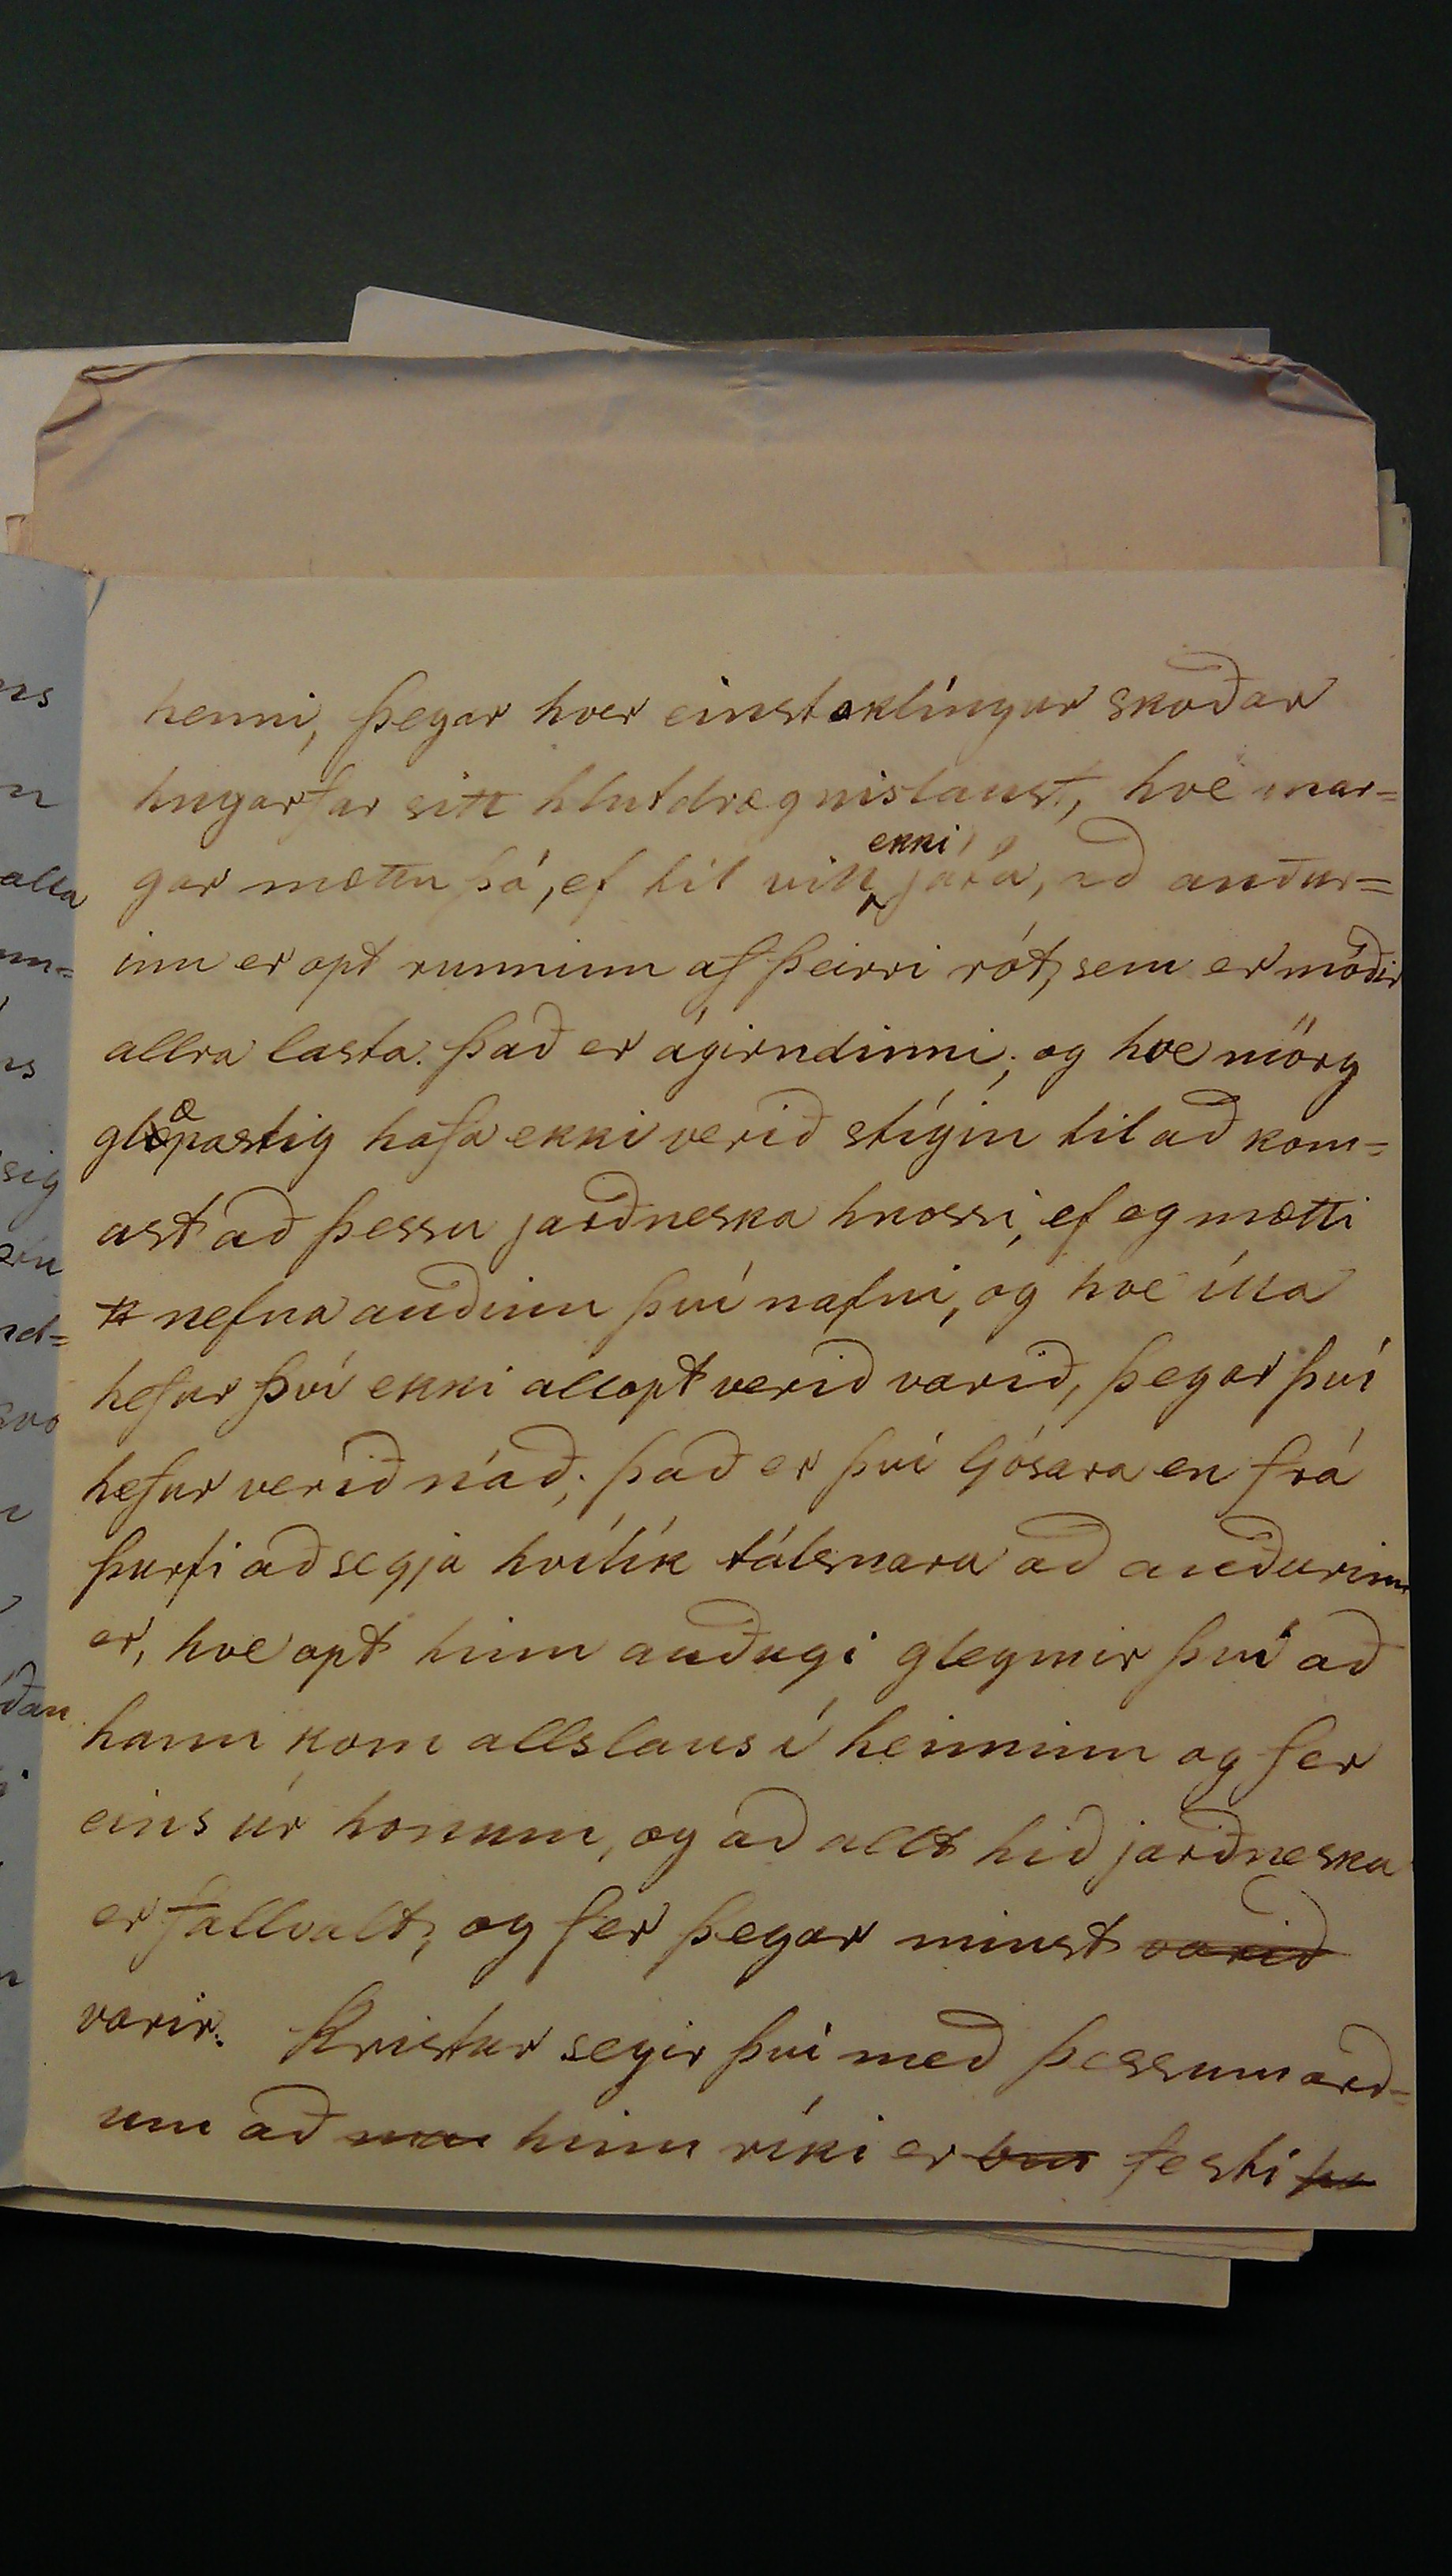 henni, þegar hver einstaklíngur skoðar
hugarfar sitt hlutdrægnislaust, hve mar=
gar mættu þá, ef til vill ekki játa, að auður=
inn er opt runninn af þeirri rót, sem er móðir
allra lasta. það er ágirndinni; og hve mörg
glæpastig hafa ekki verið stígin til að kom=
ast að þessu jarðneska hnossi, ef eg mætti
nefna auðinn því nafni, og hve illa
hefur því ekki allopt verið varið, þegar því
hefur verið náð; það er því ljósara en frá
þurfi að segja hvílík tálsnara að auðurinn
er, hve opt hinn auðugi gleymir því að
hann kom allslaus í heiminn og fer
eins úr honum, og að allt hið jarðneska
er fallvalt, og fer þegar minst varið
varir. Kristur segir því með þessum orð=
um að hinn ríki er festi